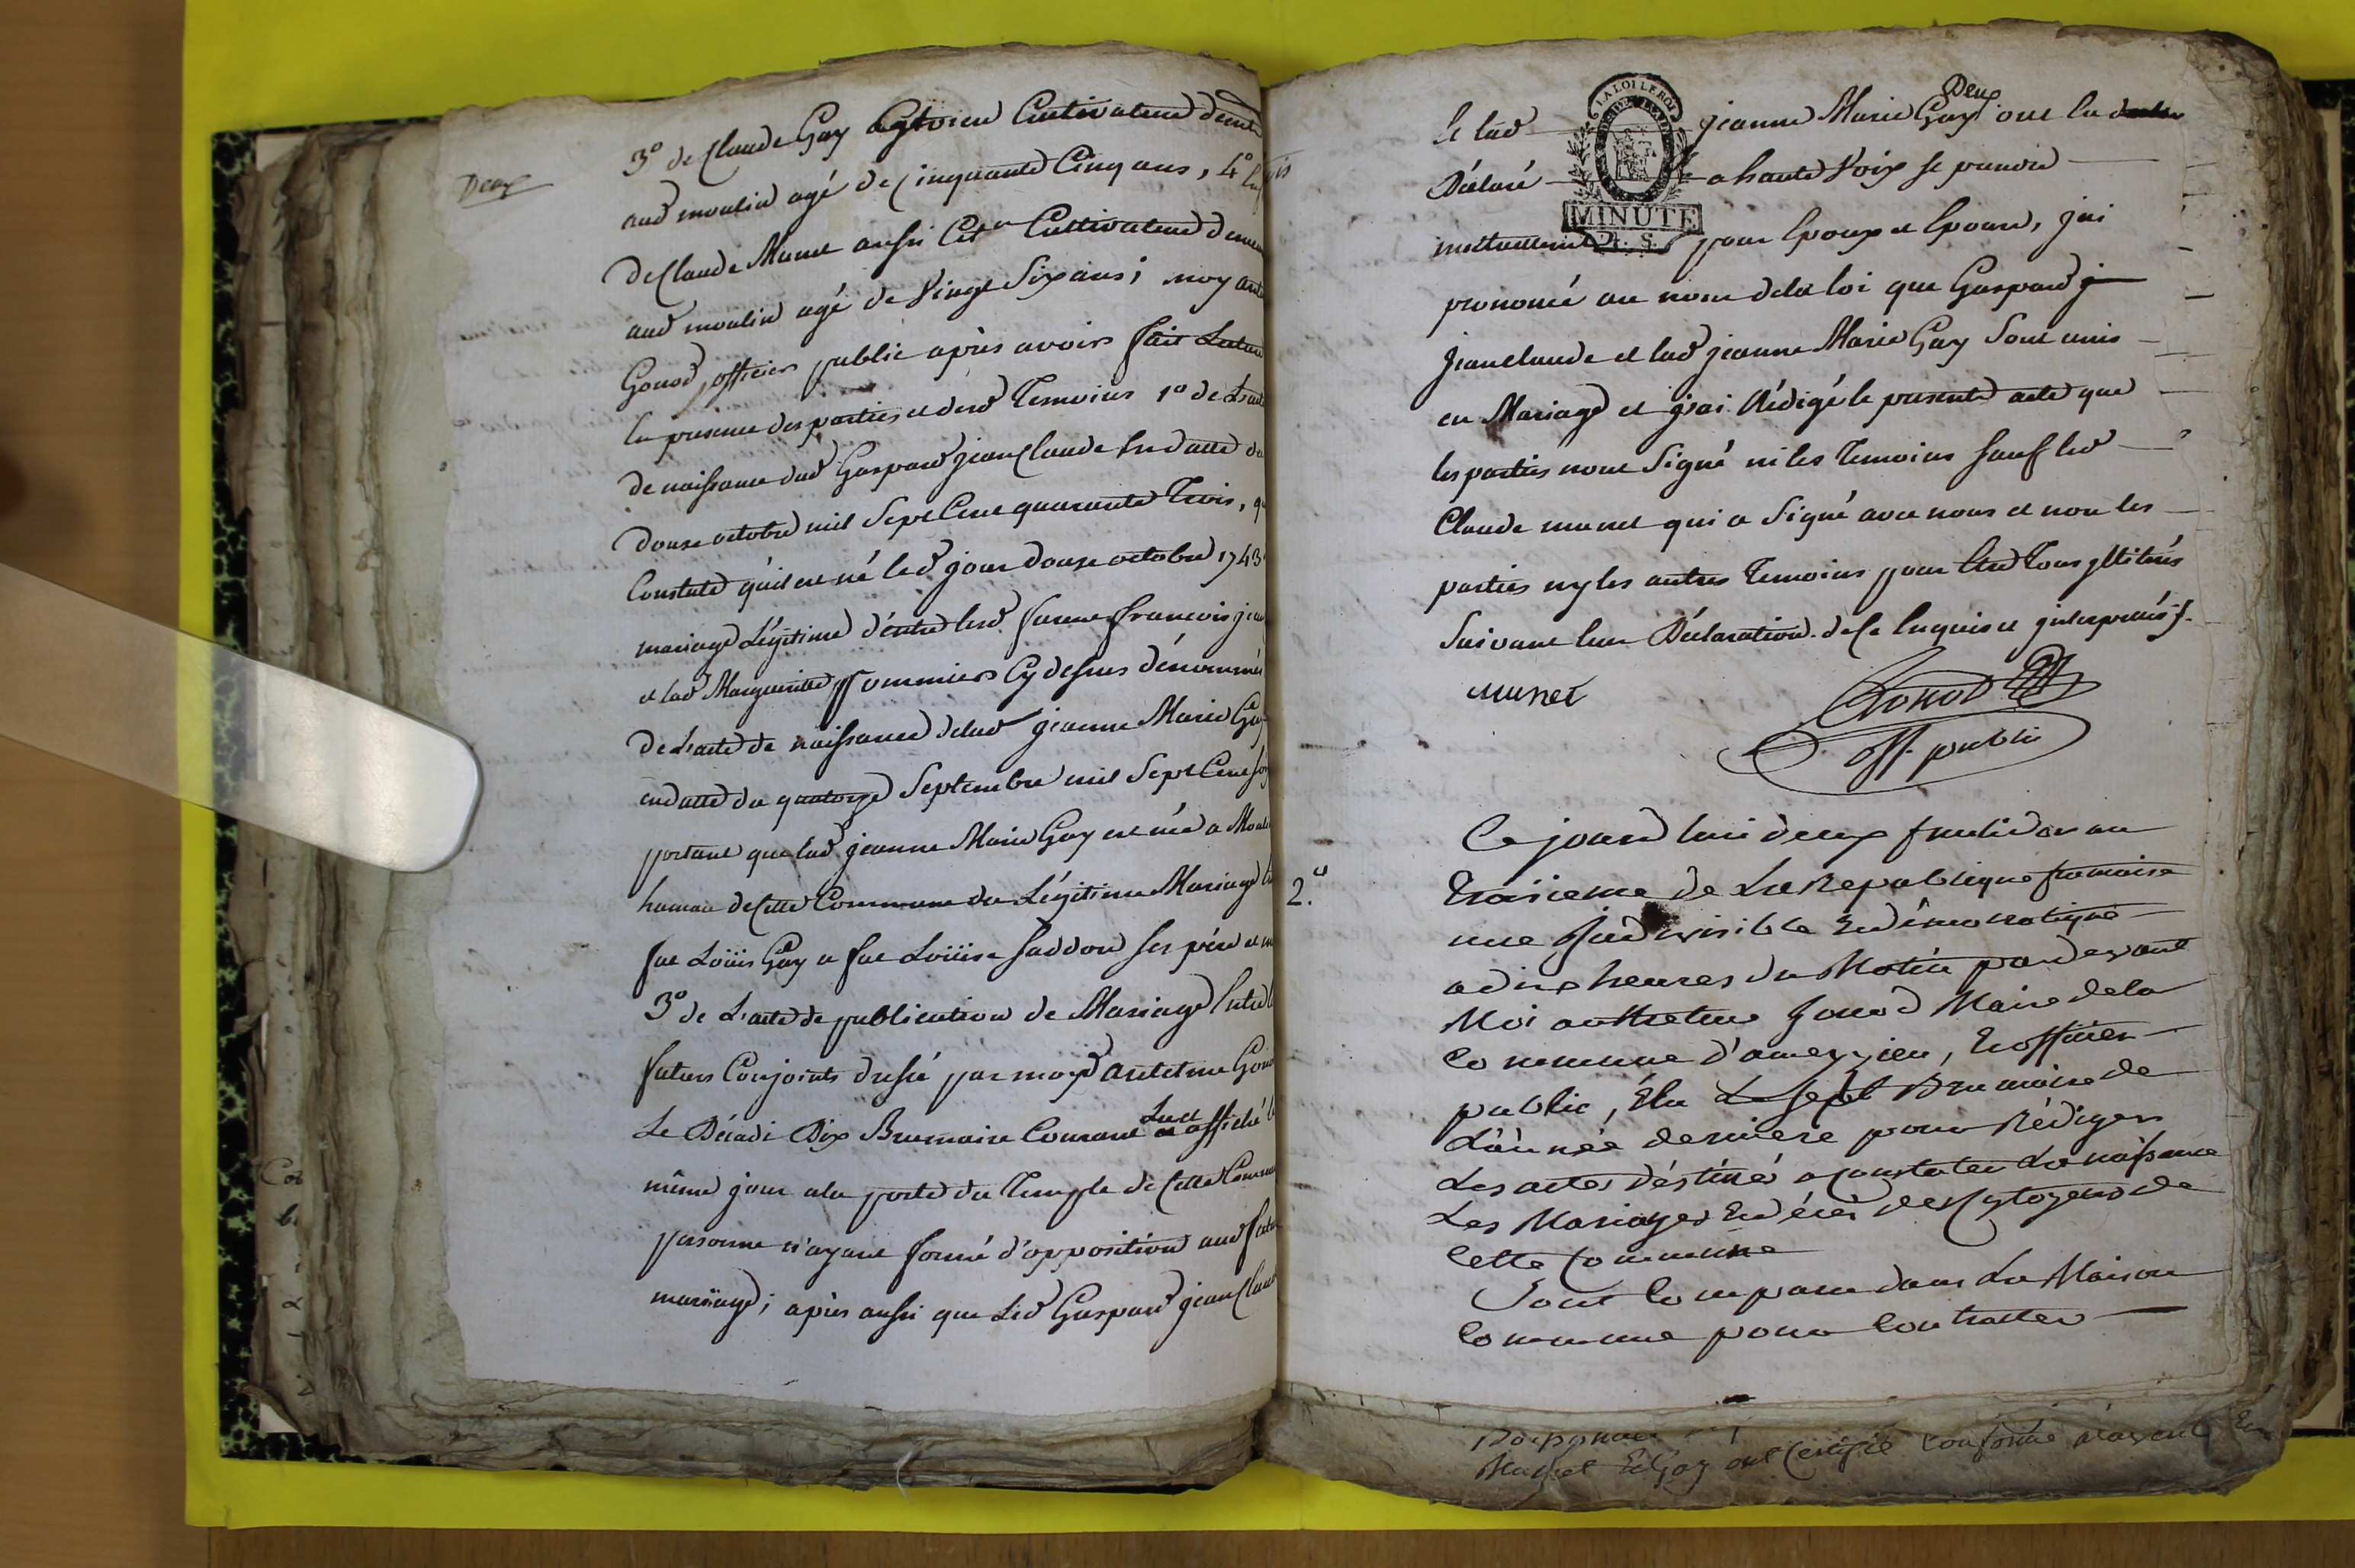 Deux
3° de Claude Gay Cultivateur demt
aud moulin agé de Cinquante Cinq ans, 4°
de Claude Munet aussi Citn Cultivateur demeu
aud moulin agé de Vingt Six ans; moy ant
Gonod, officier public après avoir fait Lectur
En presence des parties et desd Temoins 1° de L'acte
de naissance dud Gaspard jean Claude En datte du
Douze octobre mil Sept Cent quarante Trois, q
Constate qu'il est né led jour Douze octobre 1743
mariage Légitime d'entre lesd francois jean
et lad Marguerite Pommiers Cy dessus dénommés
De L'acte de naissance de lad jeanne Marie Gay
en datte du quatorze Septembre mil Sept Cent
portant que lad jeanne Marie Gay est née a Mouli
hameau de Cette Commune du Légitime Mariage
fut Loüis Gay et fut Loüise Saddou ses père et m
3° de L'acte de publication de Mariage Entre l
futurs Conjoints dressé par moyd Antelme Gono
Le Décadi Dix Brumaire Courant Lu et affiché l
même jour a la porte du Temple de Cette Commu
personne n'ayant formé d'opposition aud futu
mariage; après aussi que Led Gaspard jean Claud
LA LOI LE ROI
MINUTE
Deux
et lad jeanne Marie Gay ont
Déclaré a haute Voix se prendre
mutuellement pour Epoux et Epouse, jai
prononcé au nom de la loi que Gaspard j
jean Claude et lad jeanne Marie Gay Sont unis
en Mariage et j'ai Rédigé le present acte que
les parties n'ont Signé ni les Temoins sauf led
Claude munet qui a Signé avec nous et non les
parties ny les autres Temoins pour Etre Tous illitérés
Suivant leur Déclaration de Ce Enquis et interpellés.
Munet
Gonod
off. public
2.e
Ce jourd'hui deux fructidor an
Troisieme de La Republique francaise
une Indivisible Et democratique
a dix heures du Matin pardevant
Moi anthelme Gonod Maire de la
Commune d'ameyzieu, Et officier
public, Elu Le sept Brumaire de
L'année derniere pour Rédiger
Les actes déstiné a Constater La naissance
Les Mariages Et décès des Cytoyens de
Cette Commune
Sont Comparu dans La Maison
Commune pour Contracter
Munet Et Gay ont Certifié Conforme